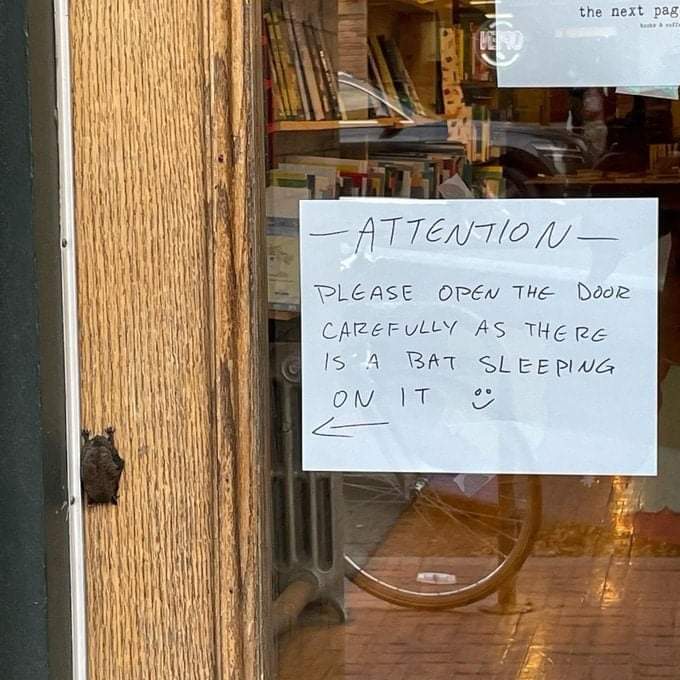 the next pag
OPEN
— ATTENTION —
PLEASE OPEN THE DOOR
CAREFULLY AS THERE
IS A BAT SLEEPING
ON IT